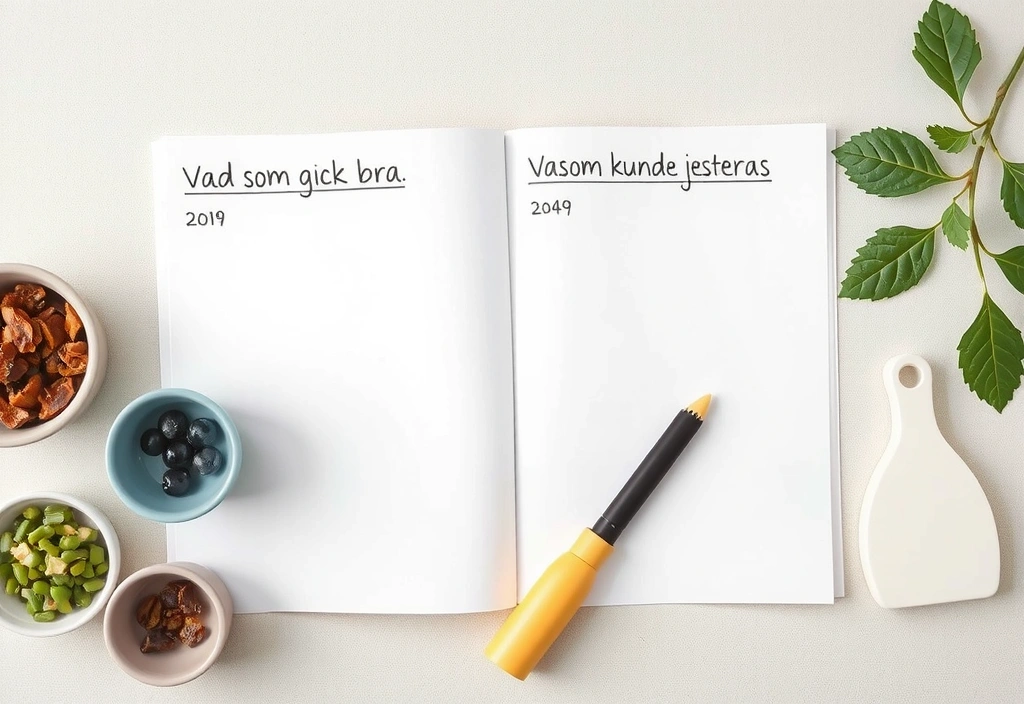 Vad som gick bra.
2019
Vasom kunde jesteras
2049